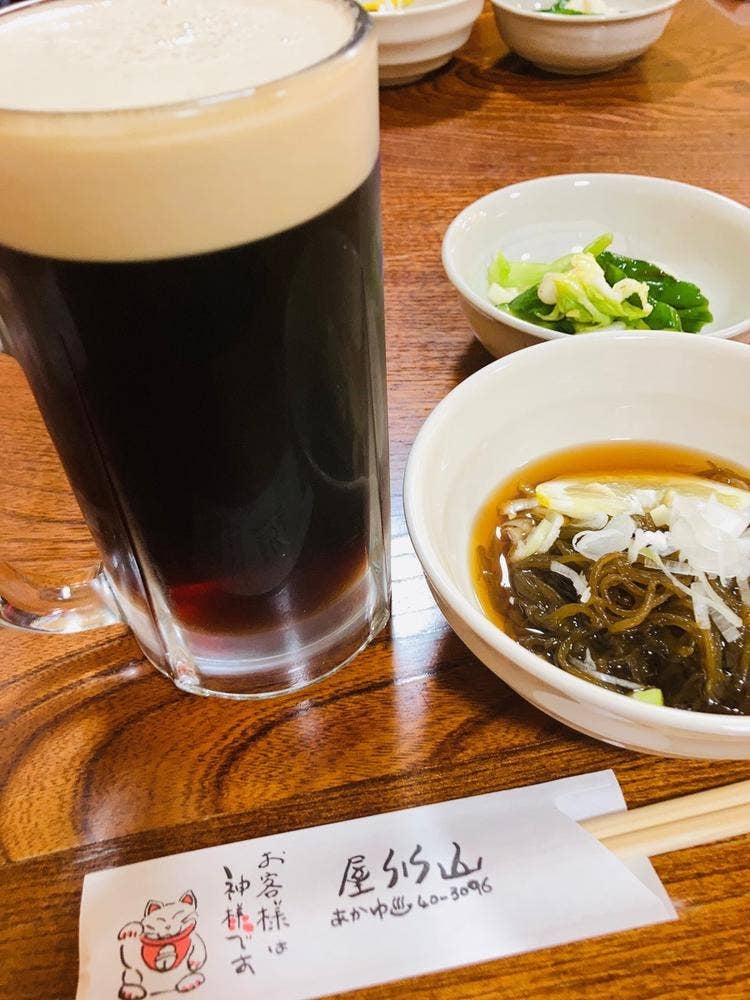 お客様は
神様です
山川屋
あかゆ♨40-3096